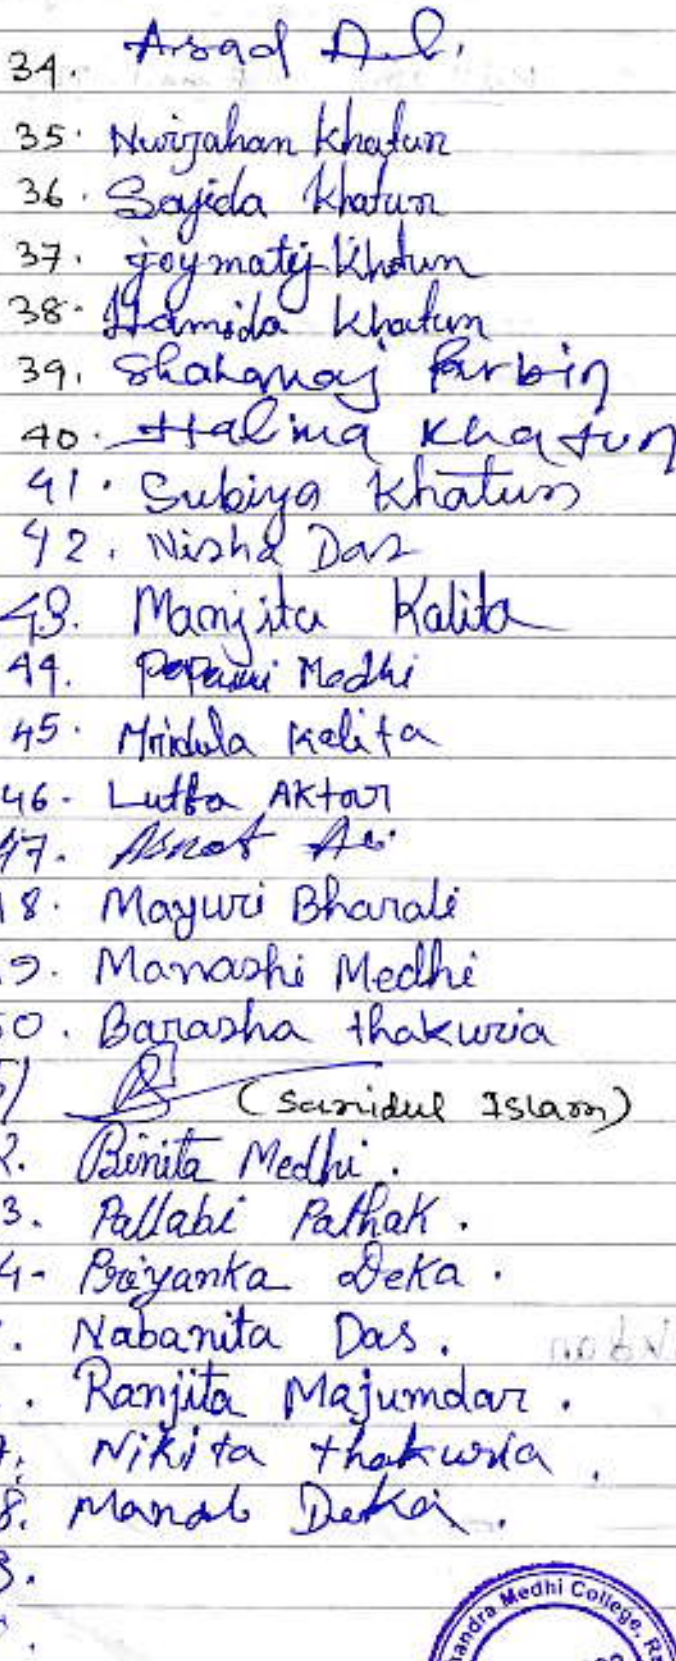 34. Asad Ali.
35. Nurjahan Khatun
36. Sajida Khatun
37. Joymatij Khatun
38. Hamida Khatun
39. Shahanaj Parbin
40. Halima Khatun
41. Subiya Khatun
42. Nisha Das
43. Manjita Kalita
44. Medhi
45. Mridula Kalita
46. Lutfa Aktar
47.
18. Mayuri Bharali
9. Manashi Medhi
0. Barasha thakuria
(Saridul Islam)
2. Binita Medhi.
3. Pallabi Pathak.
4- Priyanka Deka.
. Nabanita Das.
. Ranjita Majumdar.
7. Nikita thakuria.
8. Manab Deka.
andra Medhi College, Ra